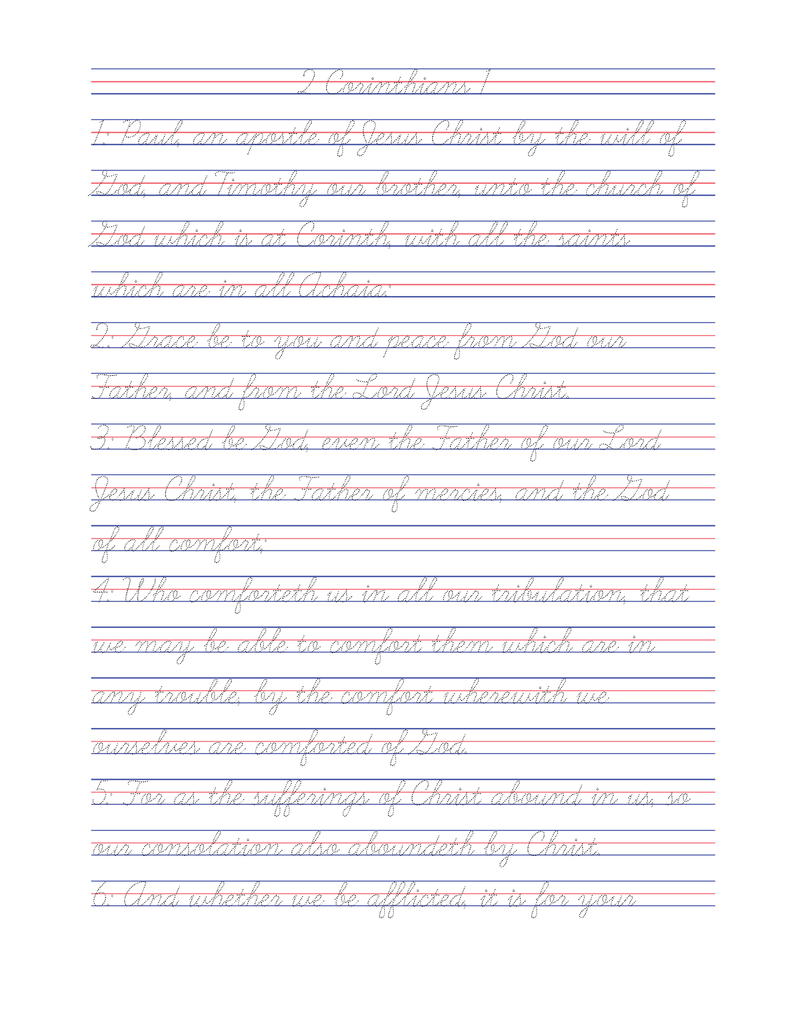 2 Corinthians 1
1: Paul, an apostle of Jesus Christ by the will of
God, and Timothy our brother, unto the church of
God which is at Corinth, with all the saints
which are in all Achaia:
2: Grace be to you and peace from God our
Father, and from the Lord Jesus Christ.
3: Blessed be God, even the Father of our Lord
Jesus Christ, the Father of mercies, and the God
of all comfort;
4: Who comforteth us in all our tribulation, that
we may be able to comfort them which are in
any trouble, by the comfort wherewith we
ourselves are comforted of God.
5: For as the sufferings of Christ abound in us, so
our consolation also aboundeth by Christ.
6: And whether we be afflicted, it is for your